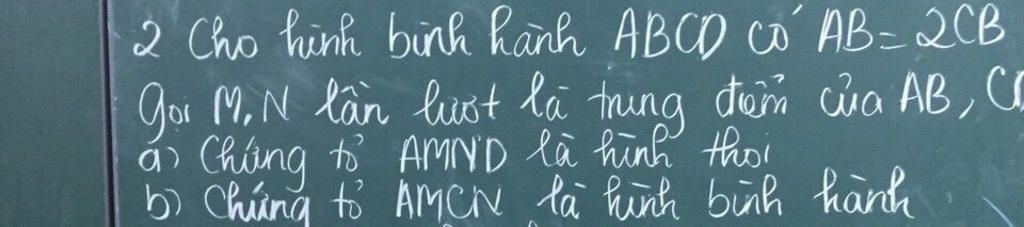 2 Cho hình bình hành ABCD có AB = 2CB
gọi M, N lần lượt là trung điểm của AB, C
a) Chứng tỏ AMND là hình thoi
b) Chứng tỏ AMCN là hình bình hành